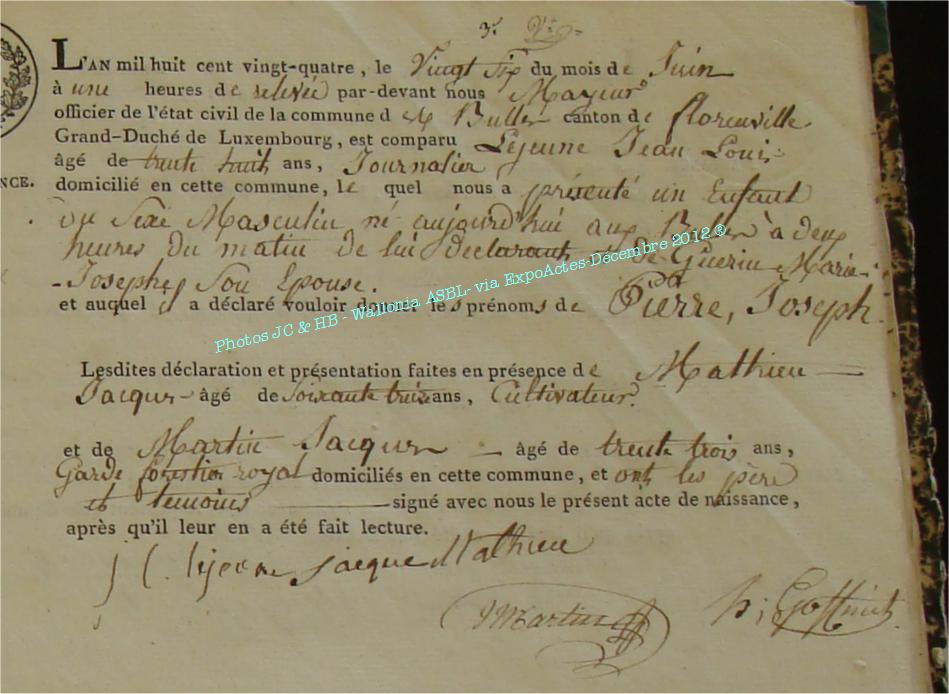 3.
L'AN mil huit cent vingt-quatre, le Vingt Six du mois de Juin
à une heures de relevée par-devant nous Mayeur
officier de l'état civil de la commune de canton de florenville
Grand-Duché de Luxembourg, est comparu Lejeune Jean Louis
âgé de trente huit ans, Journalier
NCE. domicilié en cette commune, le quel nous a présenté un Enfant
du Sexe Masculin né aujourd'hui aux à deux
heures du matin de lui déclarant et de Guerin Marie-
-Josephe, Son Epouse.
et auquel il a déclaré vouloir donner les prénoms de Pierre, Joseph.
Photos JC & HB - Wallonia ASBL- via ExpoActes-Décembre 2012 ®
Lesdites déclaration et présentation faites en présence de Mathieu
Jacques âgé de Soixante trois ans, Cultivateur.
et de Martin Jacques âgé de trente trois ans,
Garde forestier royal domiciliés en cette commune, et ont les père
et temoins signé avec nous le présent acte de naissance,
après qu'il leur en a été fait lecture.
J L. lejeune jacque Mathieu
J Martin